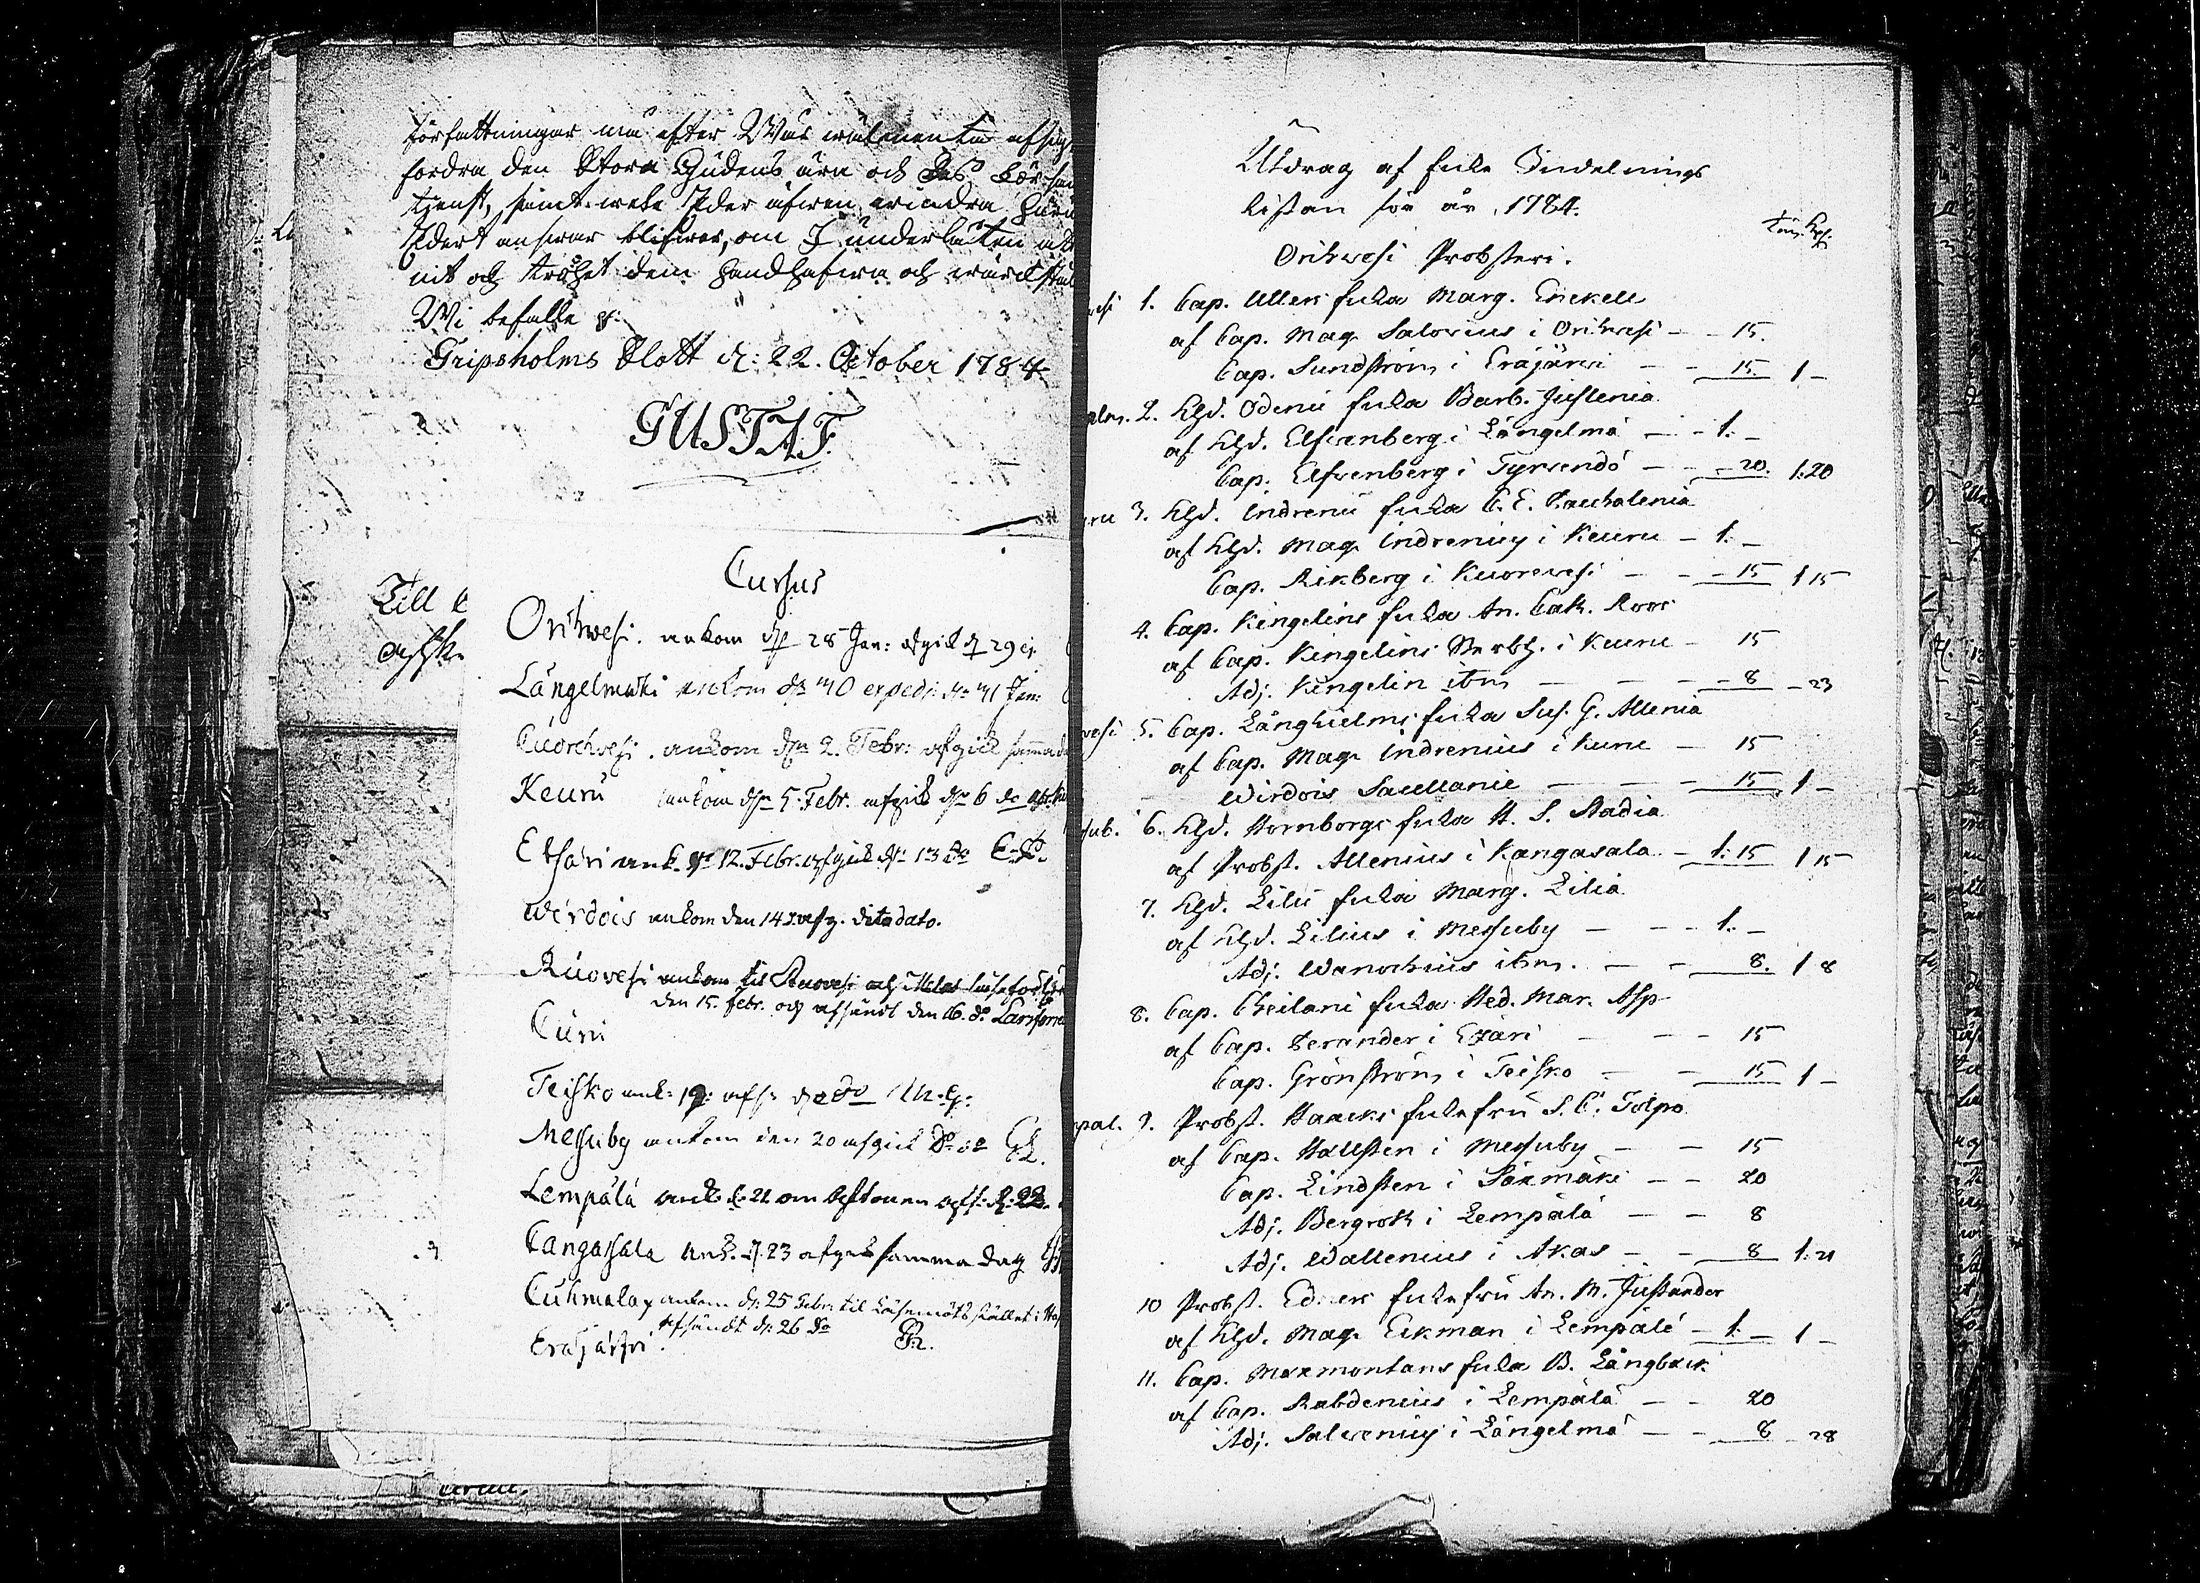 författningar må efter Wår
fordra den Stora Gudens ära och Des
tjenst, samt Eder äfwen erindra
Edert answar blifwer, om I underlåten
nit och trohet dem handhafwa och
Wi befalle
Gripsholms Slott d: 22. October 1784
GUSTAF.
Till
Cursus
Orihwesi. ankom d. 28 Jan: afgick d 29 ej.
Längelmäki ankom d. 30 exped: d. 31 Jan:
Cuorehvesi. ankom den 2. Febr: afgick samma
Keuru ankom den 5. Febr. afgick den 6 do
Etsäri ank. d. 12. Febr. afgick d. 13 do
Wirdois ankom den 14 afg. dito dato.
Ruovesi ankom til Ruovesi och
den 15. febr. och afsändt den 16. do
Curu
Teisko ank: 19: afs: do
Messuby ankom den 20 afgick do
Lempälä ank. d. 21 om aftonen afs: d: 22.
Cangasala ank. d. 23 afgick samma dag
Cuhmala ankom d: 25 Febr. til Läsemöts stället i
afsändt d: 26 do
Eräjärfvi.
Utdrag af Enke Indelnings
listan för år 1784.
Orihwesi Probsteri.
1. Cap. Ullers Enka Marg. Enckell
af Cap. Mag. Salovius i Orihwesi - - 15.
Cap. Sundström i Erajärvi - - 15. 1 -
2. Khd. Odenii Enka Barb. Juslenia
af Khd. Elfvenberg i Längelmä - - 1. -
Cap. Elfvenberg i Tyrvendö - - 20. 1:20
3. Khd. Indrenii Enka C. E. Paulalenia
af Khd. Mag. Indrenius i Keuru - 1. -
Cap. Rikberg i Kuorevesi - - 15 1 15
4. Cap. Kingelins Enka An. Cath. Roos
af Cap. Kingelins Sterbh. i Keuru - 15
Adj. Kingelin ibm - - - 8 - 23
5. Cap. Långhielms Enka Sus. G. Allenia
af Cap. Mag. Indrenius i Kuru - 15
Wirdois Sacellanie - - - 15 1 -
6. Khd. Hornborgs Enka H. S. Stadia
af Probst. Allenius i Kangasala - 1:15 1 15
7. Khd. Lilii Enka Marg. Lilia
af Khd. Lilius i Messuby - - - 1. -
Adj. Wanochius ibm. - - 8. 1 8
8. Cap. Cheilani Enka Hed. Mar. Asp
af Cap. Serander i Etzäri - - 15
Cap. Grönström i Teisko - - 15 1 -
9. Probst. Haacks Enkefru S. C. Tolpo
af Cap. Hallsten i Messuby - - 15
Cap. Lindsten i Säxmäki - - 20
Adj. Bergroth i Lempälä - - 8
Adj. Wallenius i Akas - - 8 1:21
10 Probst. Enkefru An. M. Justander
af Khd. Mag. Eekman i Lempälä - 1. - 1 -
11. Cap. Maxmontans Enka B. Långbäck
af Cap. Rabdenius i Lempälä - - 20
Adj. Salvenius i Längelmä - - 8 - 28